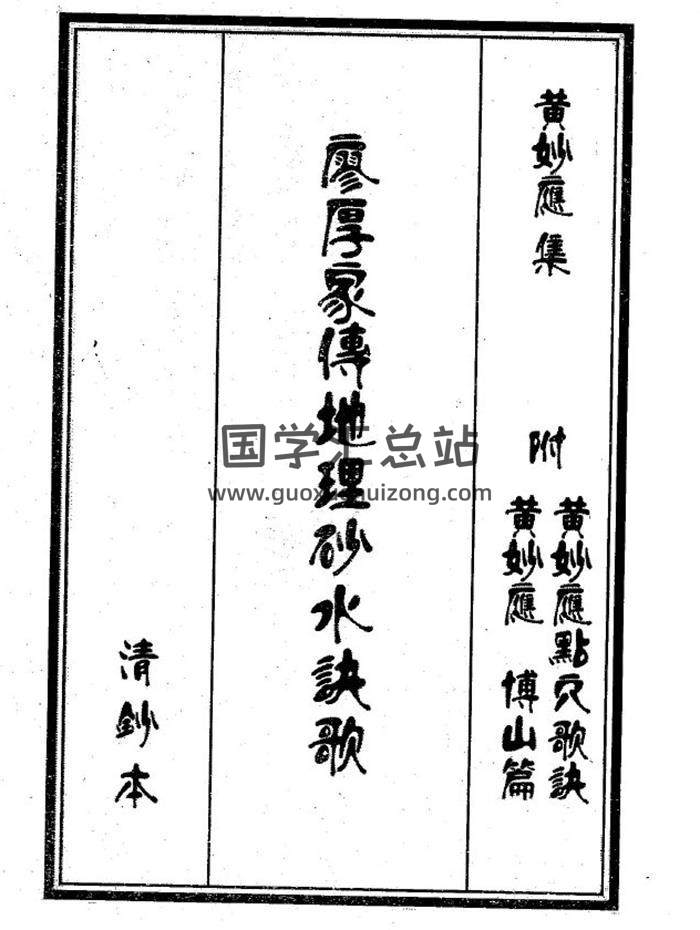 黄妙應集
附
黄妙應點穴歌訣
黄妙應 博山篇
廖厚家傳地理砂水訣歌
清鈔本
国学 总站
www.guox huizong.com